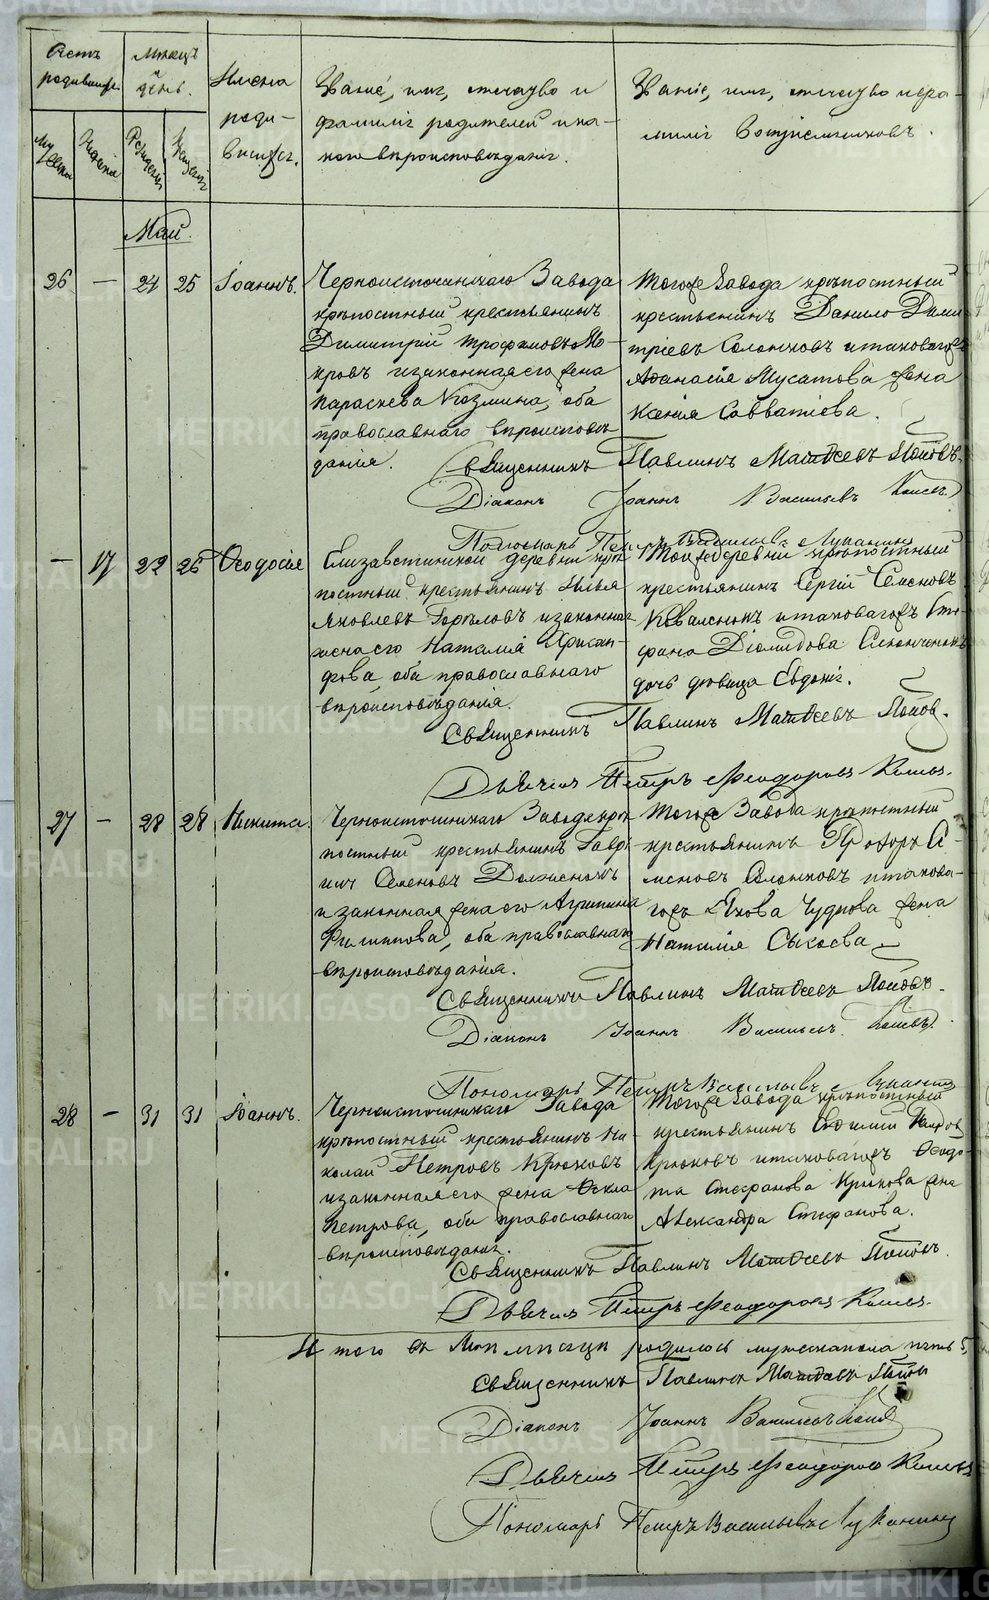 Счетъ родившихся.
Мѣсяцъ и день.
Имена родившихся.
Званіе, имя, отчество и фамилія родителей и какого вѣроисповѣданія.
Званіе, имя, отчество и фамилія воспріемниковъ.
Мужеска
Женска
Рожденія
Крещенія
Май.
26 — 24 25 Іоаннъ.
Черноисточинскаго Завода
крѣпостный крестьянинъ
Димитрій Трофимовъ Мо-
кровъ и законная его жена
Параскева Козмина, оба
православнаго вѣроисповѣ-
данія.
Тогоже Завода крѣпостный
крестьянинъ Данило Дими-
тріевъ Солонковъ и таковагожъ
Аѳанасія Мусатова жена
Ксенія Савватіева.
Священникъ Павлинъ Матѳеевъ Поповъ.
Діаконъ Іоаннъ Васильевъ
Пономарь Петръ Васильевъ Луканинъ
— 17 22 26 Ѳеодосія
Елизаветинской деревни крѣ-
постный крестьянинъ Илья
Яковлевъ Горѣловъ и законная
жена его Наталія Хрисан-
фова, оба православнаго
вѣроисповѣданія.
Тойже деревни крѣпостный
крестьянинъ Сергій Семеновъ
и таковагожъ Сте-
фана Діомидова
дочь дѣвица Евдокія.
Священникъ Павлинъ Матѳеевъ Поповъ.
Дьячекъ Петръ Феодоровъ
27 — 28 28 Никита.
Черноисточинскаго Завода крѣ-
постный крестьянинъ Гаврі-
илъ Семеновъ
и законная жена его Агрипина
Филипова, оба православнаго
вѣроисповѣданія.
Тогоже Завода крѣпостный
крестьянинъ Прохоръ Се-
меновъ Солонковъ и такова-
гожъ Якова Чуднова жена
Наталія Сысоева
Священникъ Павлинъ Матѳеевъ Поповъ.
Діаконъ Іоаннъ Васильевъ
Пономарь Петръ Васильевъ Луканинъ
28 — 31 31 Іоаннъ.
Черноисточинскаго Завода
крѣпостный крестьянинъ Ни-
колай Петровъ Крюковъ
и законная его жена Ѳекла
Петрова, оба православнаго
вѣроисповѣданія.
Тогоже Завода крѣпостный
крестьянинъ
Крюковъ и таковагожъ Ѳедо-
та Стефанова Крюкова жена
Александра Стефанова.
Священникъ Павлинъ Матѳеевъ Поповъ.
Дьячекъ Петръ Феодоровъ
Итого въ Маѣ мѣсяцѣ родилось мужескапола пять 5,
Священникъ Павлинъ Матѳеевъ Поповъ
Діаконъ Іоаннъ Васильевъ
Дьячекъ Петръ Феодоровъ
Пономарь Петръ Васильевъ Луканинъ
METRIKI.GASO-URAL.RU